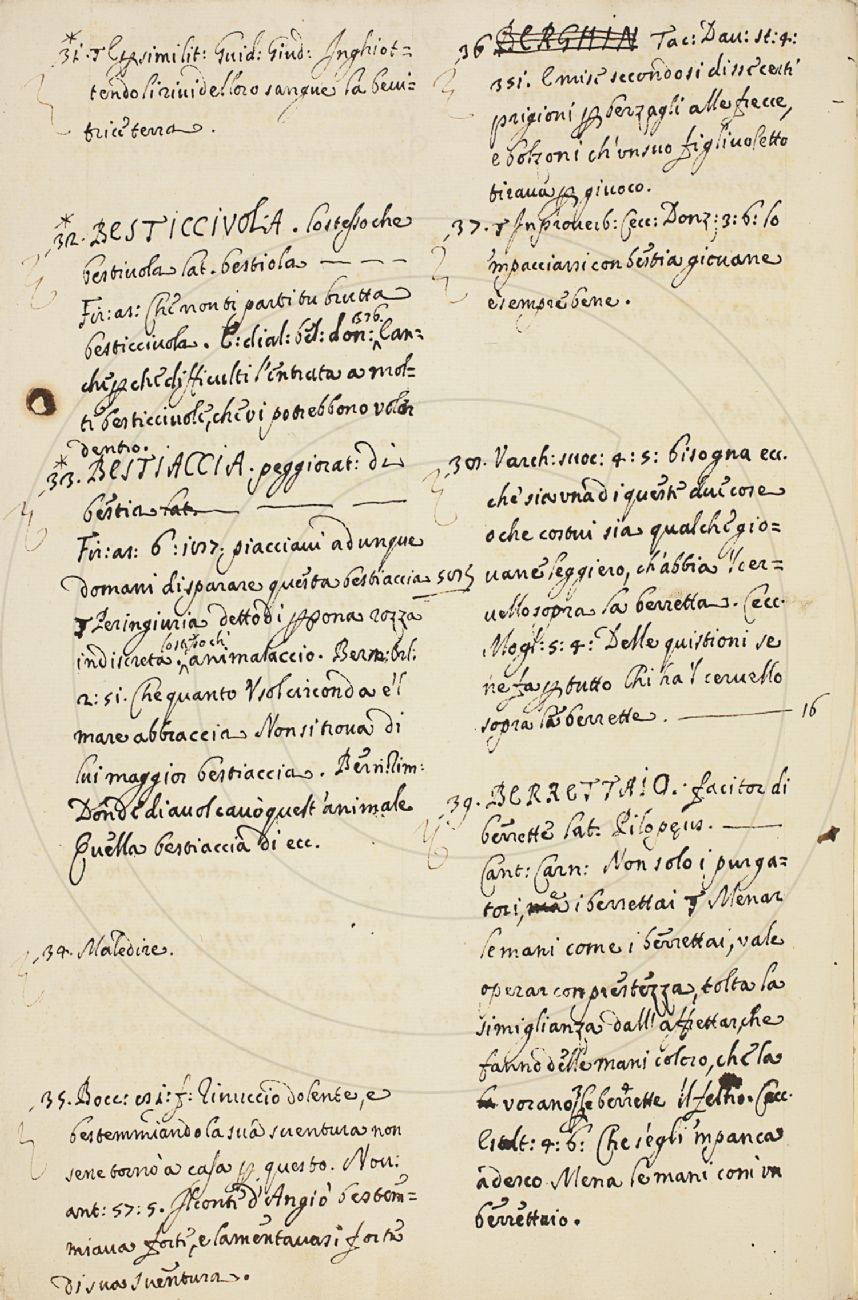 *
31. ¶ E per similit: Guid: Giud: Inghiot=
tendo li rivi del loro sangue la bevi=
trice terra.
*
32. BESTICCIVOLA. lo stesso che
bestivola lat. bestiola
Fir: as: Che non ti parti tu brutta
besticciuola. E: dial: bel: don: 376. E an=
che perche difficulti l'entrata a mol=
ti besticciuole, che vi potrebbono volar
dentro.
*
33. BESTIACCIA. peggiorat: di
bestia lat.
Fir: as: piacciavi adunque
domani di sparare questa bestiaccia
¶ Per ingiuria detto di persona rozza
indiscreta. lo stesso ch' animalaccio. Bern: Orl:
2: 51. Che quanto 'l sol circonda e 'l
mare abbraccia Non si trova di
lui maggior bestiaccia. Bern: Rim:
Donde diavol cavò quest'animale
Quella bestiaccia di ecc.
34. Maledire.
35. Bocc: f: Rinuccio dolente, e
bestemmiando la sua sventura non
se ne tornò a casa per questo. Nov:
ant: 57: 5. Il conte d'Angiò bestem=
miava forte, e lamentavasi forte
di sua sventura.
36 BERGHIN Tac: Dav: st: 4:
351. E mise secondo si disse certi
prigioni per berzagli alle frecce,
e bolzoni ch'un suo figlivoletto
tirava per givoco.
37. ¶ In proverb: Cecc: Donz: 3: 6: lo
impacciarsi con bestia giovane
è sempre bene.
38. Varch: suoc: 4: 5: bisogna ecc.
che sia una di queste due cose
o che costui sia qualche gio=
vane leggiero, ch'abbia 'l cer=
vello sopra la berretta. Cecc.
Mogl: 5: 4: Delle quistioni se
ne fa per tutto Chi ha 'l cervello
sopra la berrette. 16
39. BERRETTAIO. facitor di
berrette lat. Pilopœus.
Cant: Carn: Non solo i purga=
tori, e i berrettai ¶ Menar
le mani come i berrettai, vale
operar con prestezza, tolta la
simiglianza dall' affettar, che
fanno delle mani coloro, che la
vorano le berrette il feltro. Cecc.
4: 6: Che s'egli 'mpanca
adesco Mena le mani com' un
berrettaio.